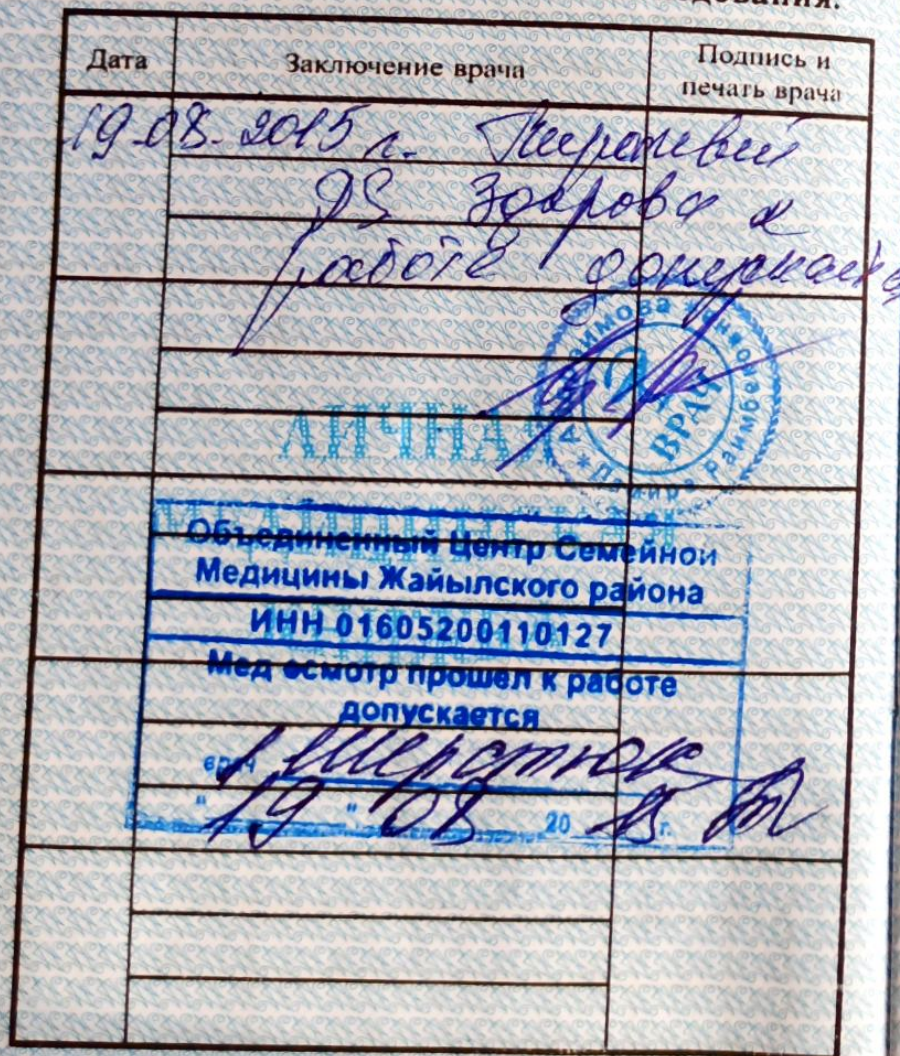 Дата
Заключение врача
Подпись и
печать врача
19.08.2015 г.
DS Здорова к
работе допускается
ВРАЧ
ЛИЧНАЯ
Объединенный Центр Семейной
Медицины Жайылского района
ИНН 01605200110127
Мед осмотр прошел к работе
допускается
врач
"19" 08 2015 г.